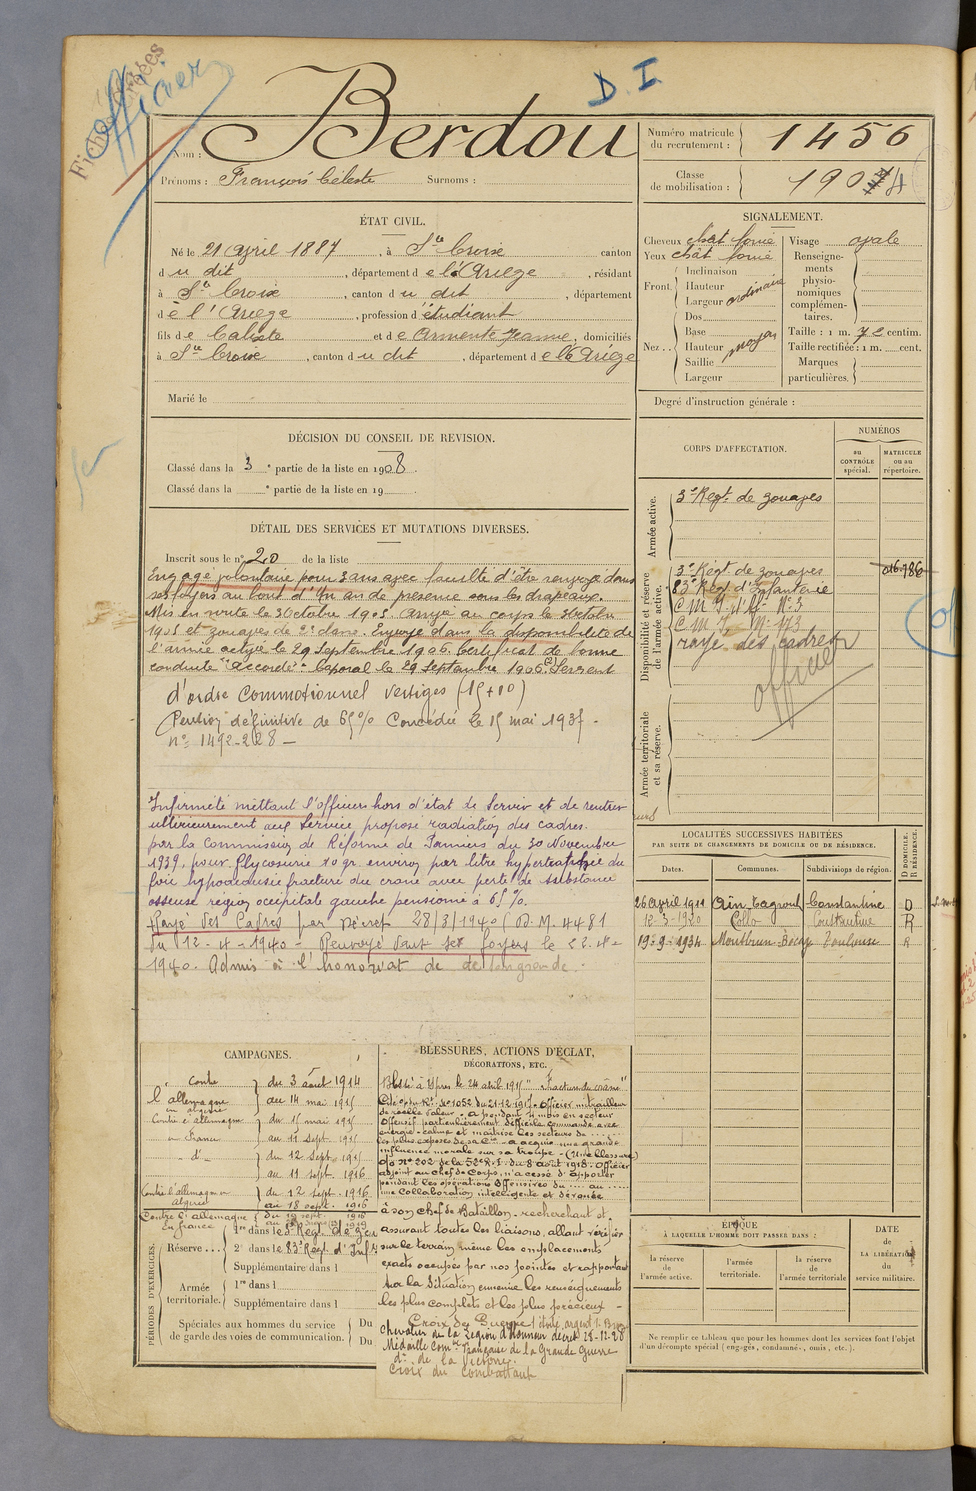 Officier
D. I.
Nom : Berdou
Prénoms : François Céleste Surnoms :
Numéro matricule du recrutement : 1456
Classe de mobilisation : 1904
ÉTAT CIVIL.
Né le 21 Avril 1887, à Ste Croix canton
du dit, département de l'Ariège, résidant
à Ste Croix, canton du dit, département
de l'Ariège, profession d'étudiant
fils de Caliste et de Armente Jeanne, domiciliés
à Ste Croix, canton du dit, département de l'Ariège
Marié le
SIGNALEMENT.
Cheveux chât foncé Visage ovale
Yeux chât foncé
Front. Inclinaison
Hauteur
Largeur ordinaire
Nez.. Dos
Base
Hauteur moyen
Saillie
Largeur
Renseignements physionomiques complémentaires.
Taille : 1 m. 72 centim.
Taille rectifiée : 1 m. cent.
Marques particulières.
Degré d'instruction générale :
DÉCISION DU CONSEIL DE REVISION.
Classé dans la 3e partie de la liste en 1908.
Classé dans la e partie de la liste en 19
DÉTAIL DES SERVICES ET MUTATIONS DIVERSES.
Inscrit sous le n° 20 de la liste
Engagé volontaire pour 3 ans avec faculté d'être renvoyé dans
ses foyers au bout d'un an de présence sous les drapeaux.
Mis en route le 3 Octobre 1905. Arrivé au corps le 3 Octobre
1905 et zouaves de 2e classe. Envoyé dans la disponibilité de
l'armée active le 29 Septembre 1906. Certificat de bonne
conduite "Accordé". Caporal le 29 Septembre 1906. Sergent
d'ordre commotionnel vertiges (15+10)
Pension définitive de 65% concédée le 15 mai 1937 -
n° 1492-228 -
Infirmité mettant l'officier hors d'état de servir et de rentrer
ultérieurement au service proposé radiation des cadres
par la Commission de Réforme de Pamiers du 30 Novembre
1939, pour Glycosurie 10 gr. environ par litre hypertrophie du
foie hypoacousie fracture du crane avec perte de substance
osseuse région occipitale gauche pensionné à 65%.
Rayé des Cadres par Décret 28/3/1940 (D.M. 4481
du 12-4-1940 - Renvoyé dans ses foyers le 22-4-
1940. Admis à l'honorat de son grade.
CORPS D'AFFECTATION.
NUMÉROS
au CONTRÔLE spécial.
MATRICULE ou au répertoire.
Armée active.
3e Régt. de zouaves
Disponibilité et réserve de l'armée active.
3e Régt. de zouaves
83e Régt d'Infanterie
rayé des cadres
officier
Armée territoriale et sa réserve.
LOCALITÉS SUCCESSIVES HABITÉES
PAR SUITE DE CHANGEMENTS DE DOMICILE OU DE RÉSIDENCE.
Dates. Communes. Subdivisions de région. D DOMICILE. R RÉSIDENCE.
26 Avril 1911 Aïn Tagrout Constantine D
12-3-1920 Collo Constantine R
19-9-1934 Montbrun-Bocage Toulouse R
CAMPAGNES.
Contre l'allemagne en algérie du 3 août 1914
au 14 mai 1915
Contre l'allemagne en France du 15 mai 1915
au 11 Sept 1915
- d° - du 12 Sept 1915
au 11 sept. 1916
Contre l'allemagne en Algérie du 12 sept. 1916
au 18 sept. 1916
Contre l'allemagne En France du 19 sept. 1916
BLESSURES, ACTIONS D'ÉCLAT,
DÉCORATIONS, ETC.
Blessé à Ypres le 24 avril 1915 "Fracture du crâne"
de réelle valeur - a pendant 4 mois en secteur
offensif particulièrement difficile commandé avec
énergie - calme et maîtrise les secteurs de .....
les plus exposés de sa Cie - a acquis une grande
influence morale sur sa troupe - (Une blessure)
O/O N° 202 de la 52e R.I. du 8 août 1918 : Officier
adjoint au chef de corps, n'a cessé d'apporter
pendant les opérations offensives du .... au ....
une collaboration intelligente et dévouée
à son chef de Bataillon - recherchant et
assurant toutes les liaisons, allant vérifier
sur le terrain même les emplacements
exacts occupés par nos pointes et rapportant
sur la situation ennemie les renseignements
les plus complets et les plus précieux -
Croix de Guerre
Chevalier de la Légion d'Honneur décret 28-12-28
Médaille Comve Française de la Grande Guerre
dt de la Victoire
Croix du Combattant
PÉRIODES D'EXERCICES.
Réserve... 1re dans le 3e Régt de Zou
2e dans le 83e Régt d'Inf.
Supplémentaire dans l
Armée territoriale. 1re dans l
Supplémentaire dans l
Spéciales aux hommes du service de garde des voies de communication. Du
Du
ÉPOQUE
À LAQUELLE L'HOMME DOIT PASSER DANS :
la réserve de l'armée active.
l'armée territoriale.
la réserve de l'armée territoriale
DATE de LA LIBÉRATION du service militaire.
Ne remplir ce tableau que pour les hommes dont les services font l'objet
d'un décompte spécial (engagés, condamnés, omis, etc.).